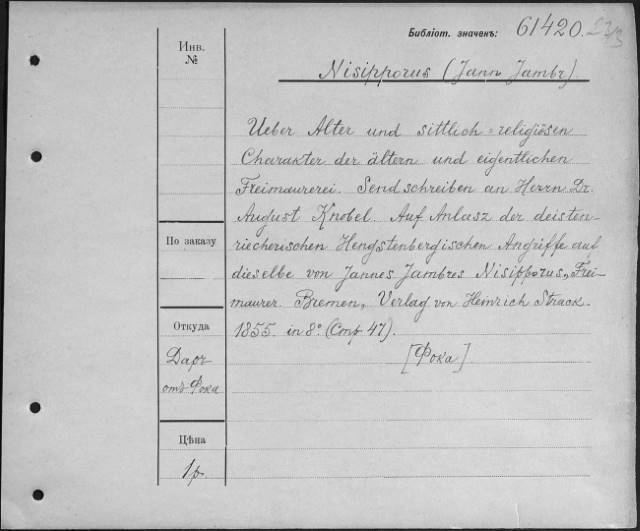 Библіот. значенъ: 61420.
Инв.
№
Nisipporus (Jann Jambr.)
Ueber Alter und sittlich-religiösen
Charakter der ältern und eigentlichen
Freimaurerei. Sendschreiben an Herrn Dr.
August Knobel. Auf Anlasz der deisten-
riecherischen Hengstenbergischen Angriffe auf
По заказу
dieselbe von Jannes Jambres Nisipporus, Frei-
maurer. Bremen, Verlag von Heinrich Strack.
Откуда
1855. in 8° (Стр. 47).
Даръ
[Фока]
отъ Фока
Цѣна
1р.